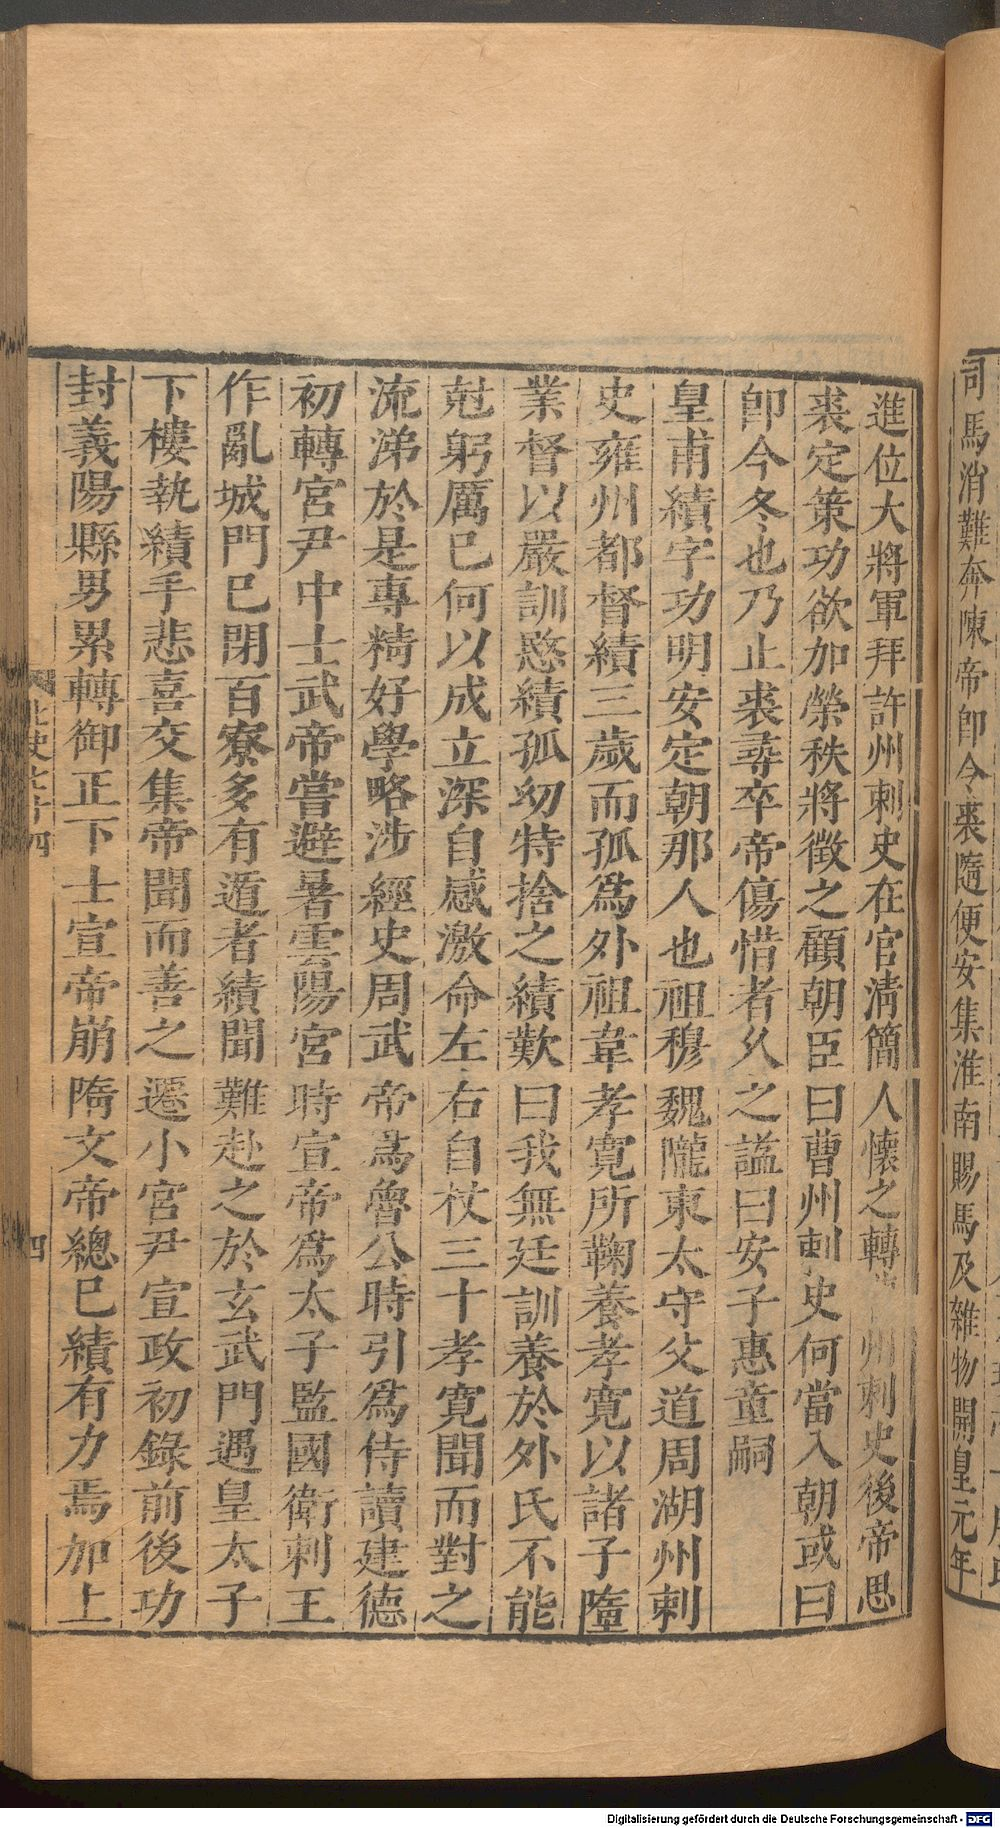 司馬消難奔陳帝即令裘隨便安集淮南賜馬及雜物開皇元年
進位大將軍拜許州刺史在官清簡人懷之轉州刺史後帝思
裘定策功欲加榮秩將徵之顧朝臣曰曹州刺史何當入朝或曰
即今冬也乃止裘尋卒帝傷惜者久之謚曰安子惠童嗣
皇甫績字功明安定朝那人也祖穆魏隴東太守父道周湖州刺
史雍州都督績三歲而孤爲外祖韋孝寬所鞠養孝寬以諸子墮
業督以嚴訓愍績孤幼特捨之績歎曰我無廷訓養於外氏不能
尅躬厲已何以成立深自感激命左右自杖三十孝寬聞而對之
流涕於是專精好學略涉經史周武帝爲魯公時引爲侍讀建德
初轉宮尹中士武帝嘗避暑雲陽宮時宣帝爲太子監國衛剌王
作亂城門已閉百寮多有遁者績聞難赴之於玄武門遇皇太子
下樓執績手悲喜交集帝聞而善之遷小宮尹宣政初錄前後功
封義陽縣男累轉御正下士宣帝崩隋文帝總已績有力焉加上
四
Digitalisierung gefördert durch die Deutsche Forschungsgemeinschaft - DFG